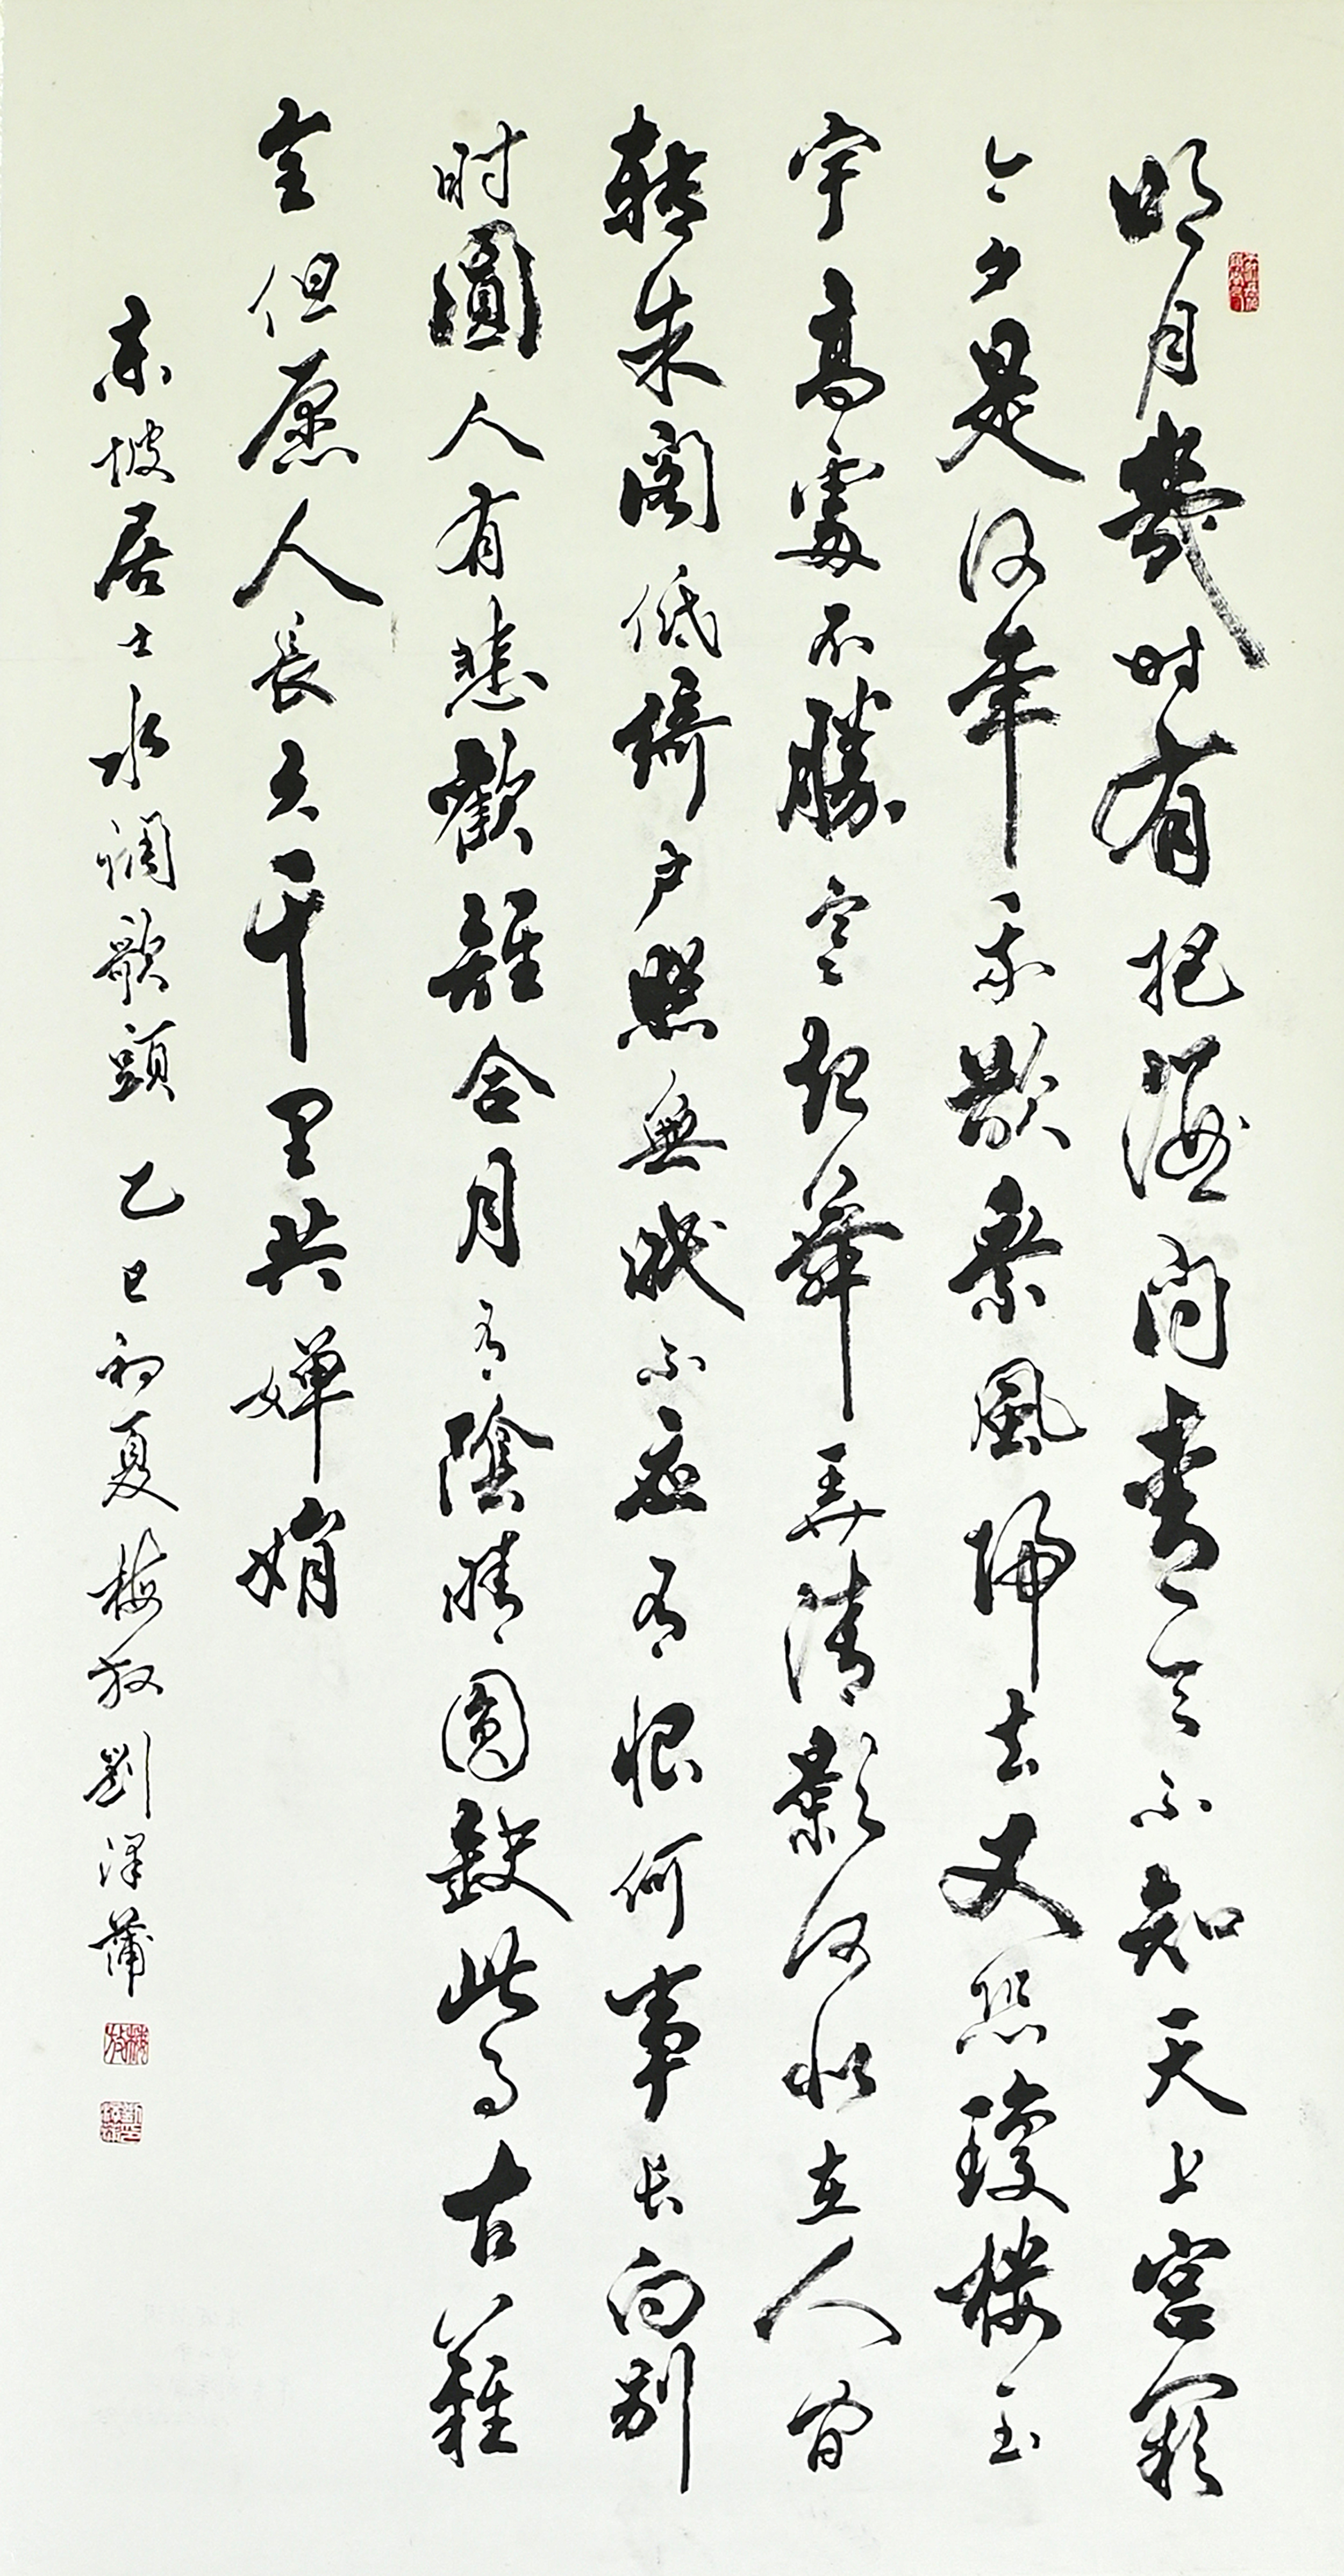 明月幾时有把酒问青天不知天上宫阙
今夕是何年我欲乘風歸去又恐瓊楼玉
宇高處不勝寒起舞弄清影何似在人间
轉朱阁低綺户照無眠不應有恨何事长向别
时圓人有悲歡離合月有陰晴圆缺此事古難
全但愿人長久千里共嬋娟
東坡居士水调歌頭 乙巳初夏梅放劉澤蒲
梅放